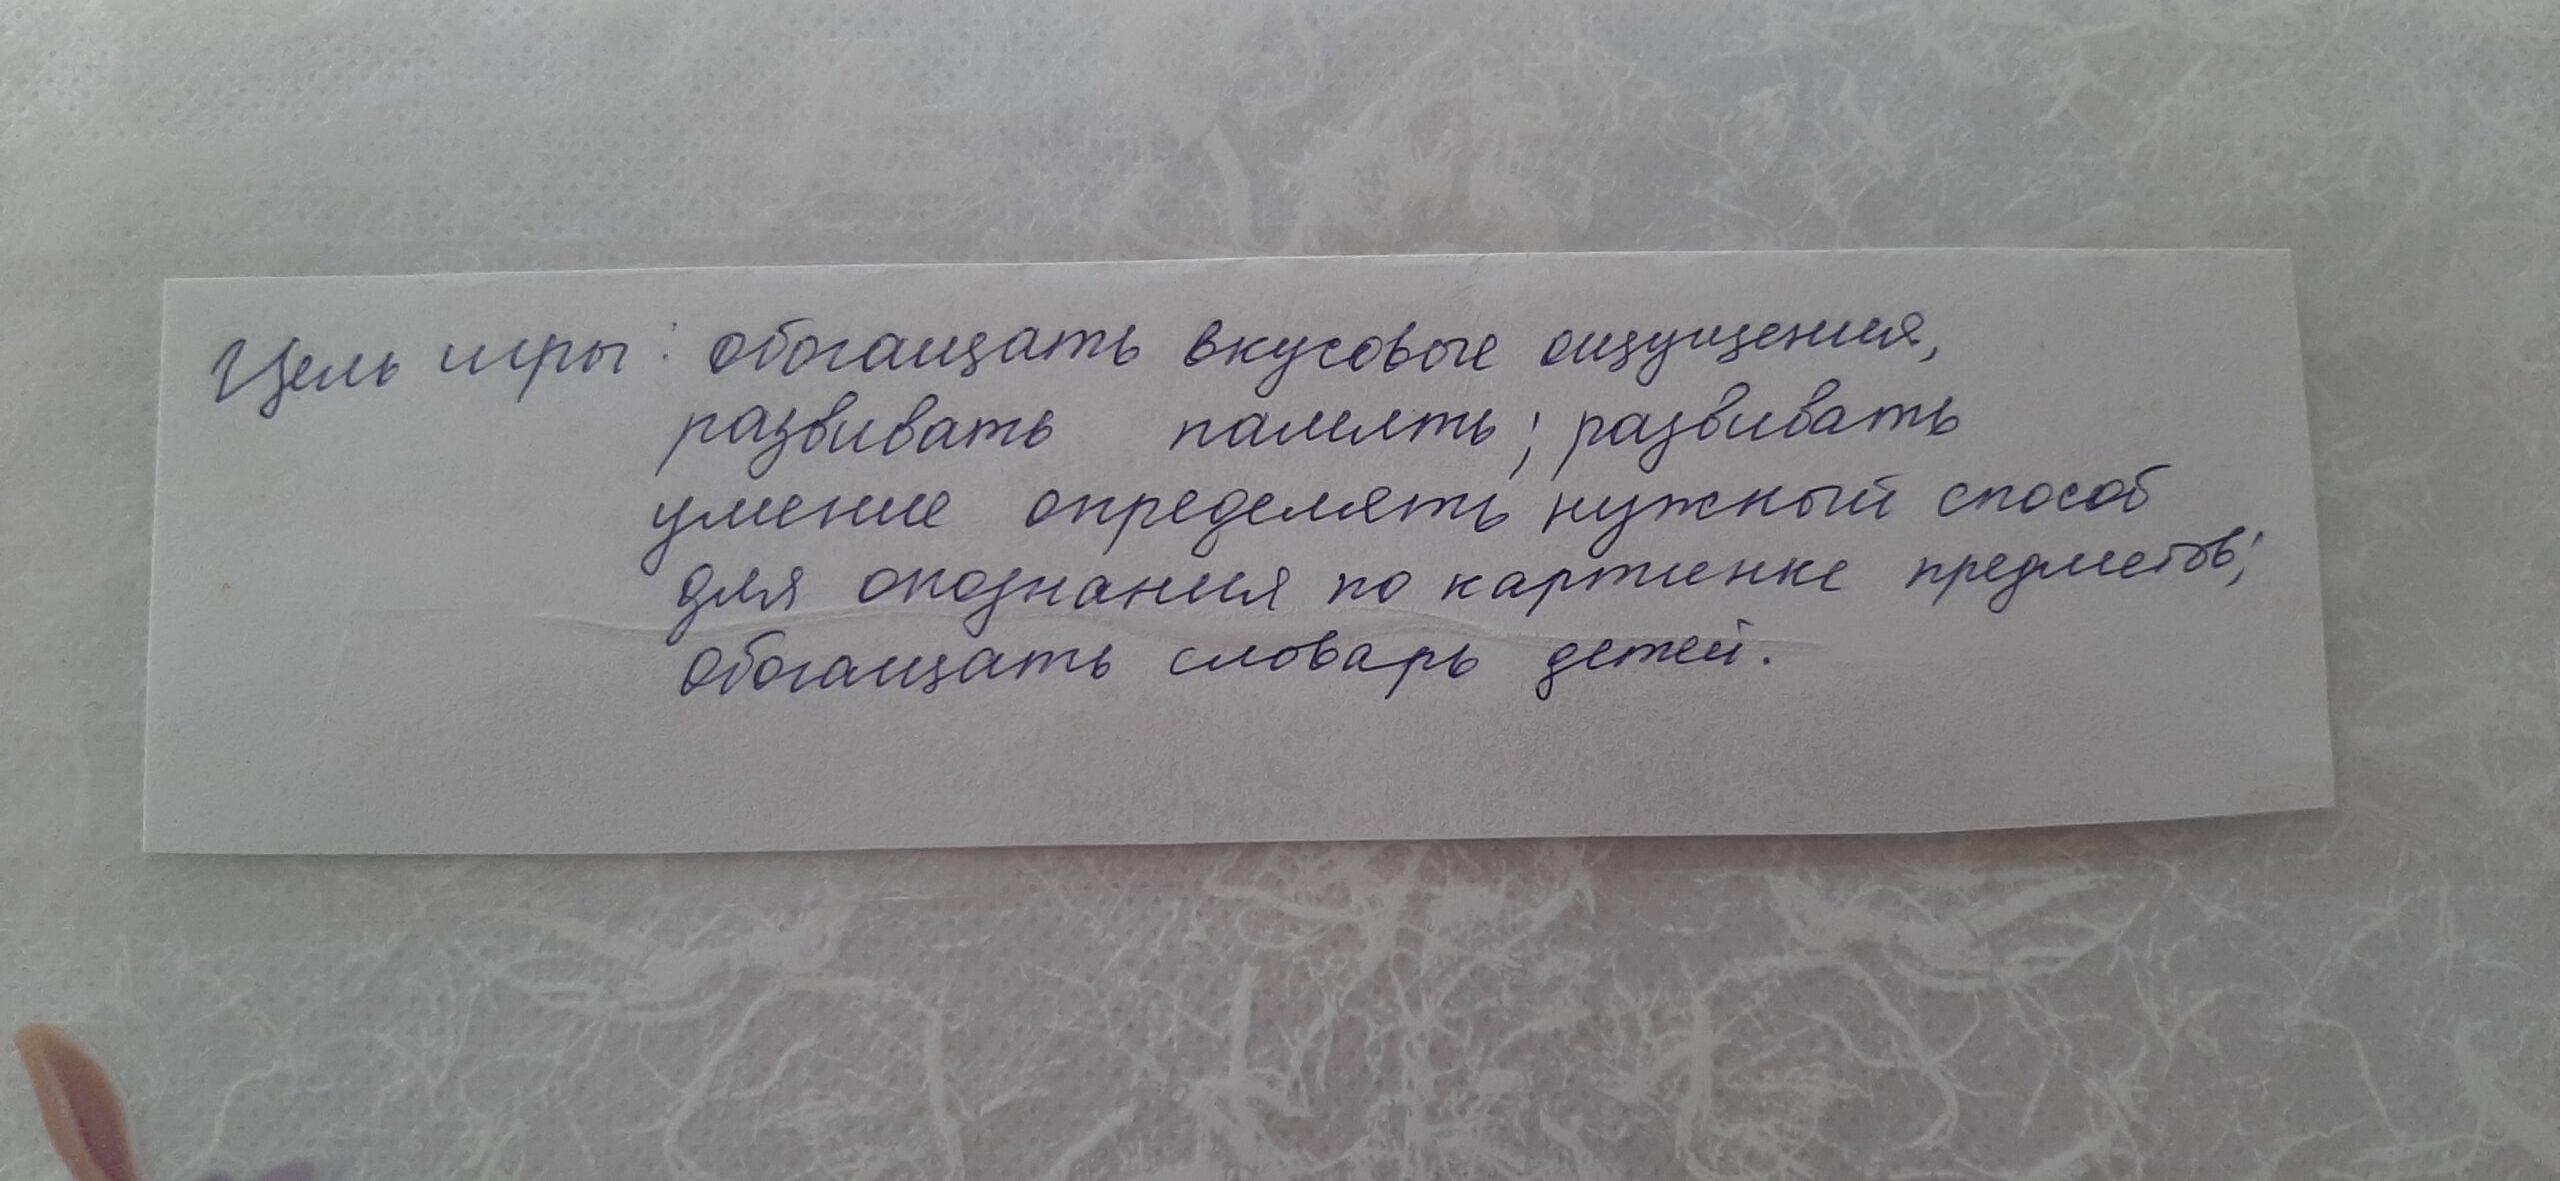 Цель игры: обогащать вкусовые ощущения,
развивать память; развивать
умение определять нужный способ
для опознания по картинке предметов;
обогащать словарь детей.